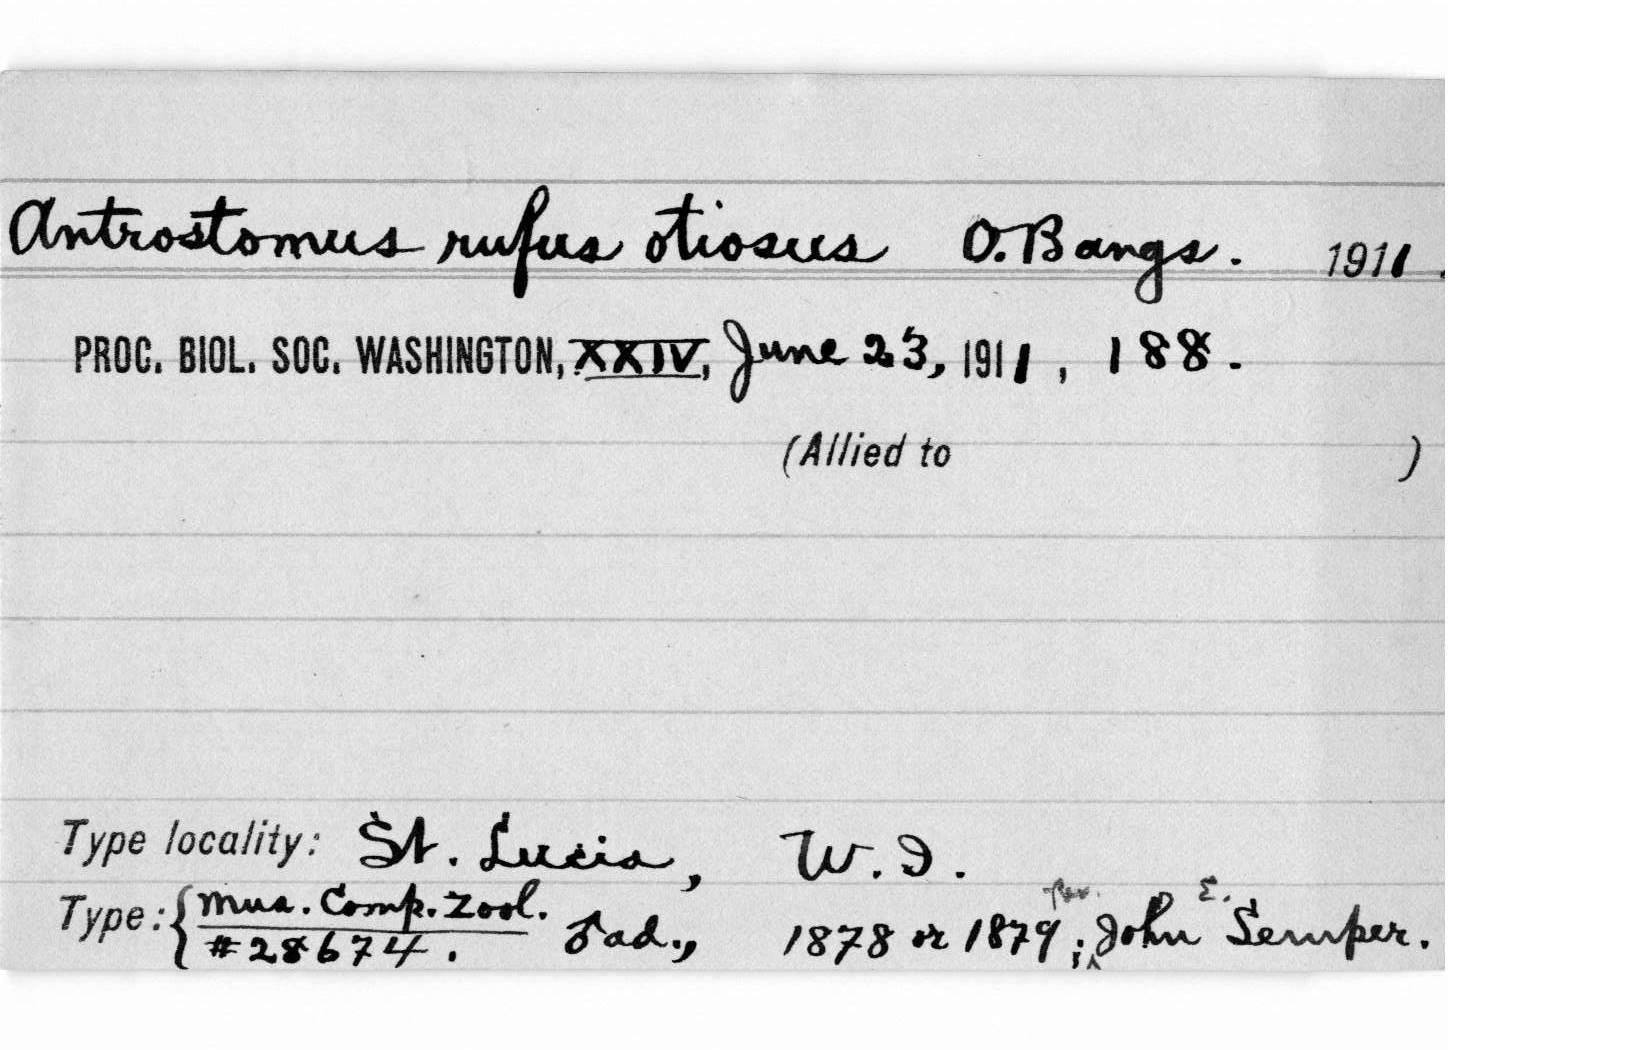 Antrostomus rufus otiosus O. Bangs. 1911.
PROC. BIOL. SOC. WASHINGTON, XXIV, June 23, 1911, 188.
(Allied to )
Type locality: St. Lucia, W. I.
Type: { Mus. Comp. Zool. #28674. ♂ ad., 1878 or 1879; Rev. John E. Semper.